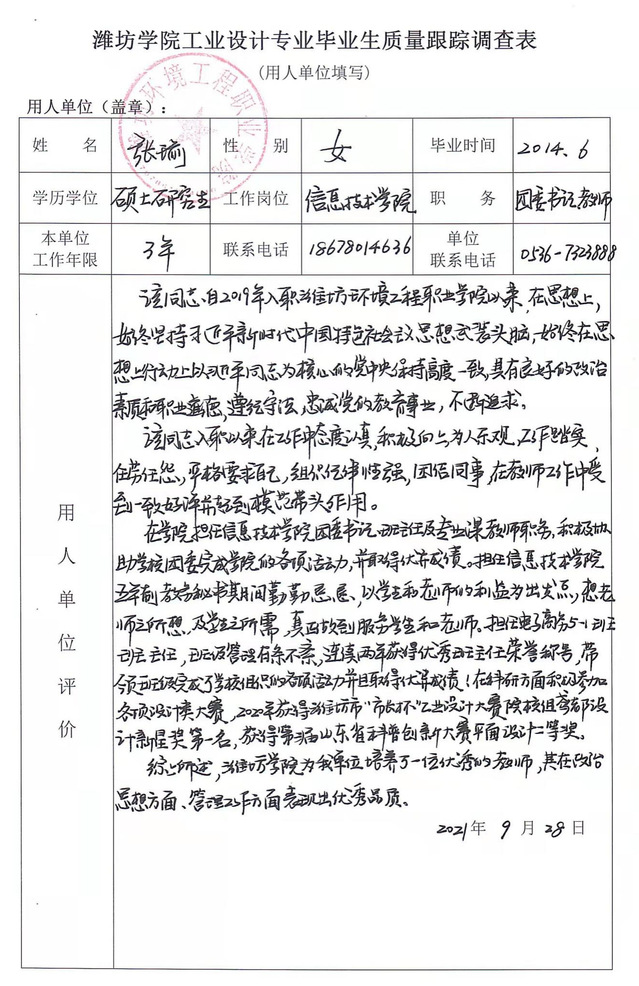 潍坊学院工业设计专业毕业生质量跟踪调查表
(用人单位填写)
用人单位（盖章）：
潍坊环境工程职业学院
姓 名 张瑜 性 别 女 毕业时间 2014.6
学历学位 硕士研究生 工作岗位 信息技术学院 职 务 团委书记教师
本单位工作年限 3年 联系电话 18678014636 单位联系电话 0536-7323888
用人单位评价
该同志自2019年入职潍坊环境工程职业学院以来，在思想上，
始终坚持习近平新时代中国特色社会主义思想武装头脑，始终在思
想上行动上以习近平同志为核心的党中央保持高度一致，具有良好的政治
素质和职业道德，遵纪守法，忠诚党的教育事业，不断追求。
该同志入职以来在工作中态度认真，积极向上，为人乐观，工作踏实，
任劳任怨，严格要求自己，组织纪律性强，团结同事，在教师工作中受
到一致好评并起到模范带头作用。
在学院担任信息技术学院团委书记、班主任及专业课教师职务，积极协
助学校团委完成学院的各项活动，并取得优异成绩。担任信息技术学院
五年制教务秘书期间勤勤恳恳，以学生和老师的利益为出发点，想老
师之所想，及学生之所需，真正做到服务学生和老师。担任电子商务5-1班
班主任，班级管理有条不紊，连续两年获得优秀班主任荣誉称号，带
领班级完成了学校组织的各项活动并且取得优异成绩！在科研方面积极参加
各项设计类大赛，2020年获得潍坊市“市长杯”工业设计大赛院校组鸢都设
计新星奖第一名，获得第 届山东省科普创新大赛平面设计二等奖。
综上所述，潍坊学院为我单位培养了一位优秀的教师，其在政治
思想方面、管理工作方面表现出优秀品质。
2021年 9月 28日